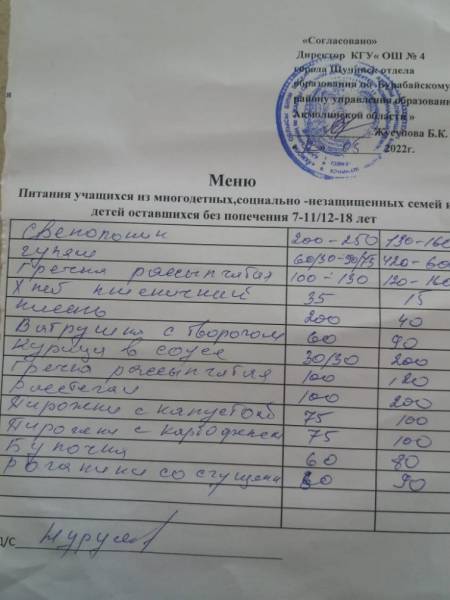 «Согласовано»
Директор КГУ« ОШ № 4
города Щучинск отдела
образования по Бурабайскому
району управления образования
Акмолинской области »
Жусупова Б.К.
05 2022г.
я
Меню
Питания учащихся из многодетных,социально -незащищенных семей и
детей оставшихся без попечения 7-11/12-18 лет
200-250 130-160
гуляш 60/30-90/45 420-60
Гречка рассыпчатая 100-130 120-160
Хлеб пшеничний 35 15
кисель 200 40
Ватрушки с творогом 60 90
Курица в соусе 30/30 200
Гречка рассыпчатая 100 120
Расстегаи 100 200
Пирожки с капустой 75 100
Пирожки с картофелем 75 100
Булочки 60 80
рогалики со сгущен 60 90
д/с